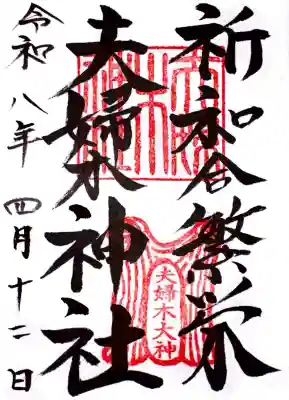 祈和合繁栄
夫婦木神社
令和八年 四月十二日
夫婦木大神